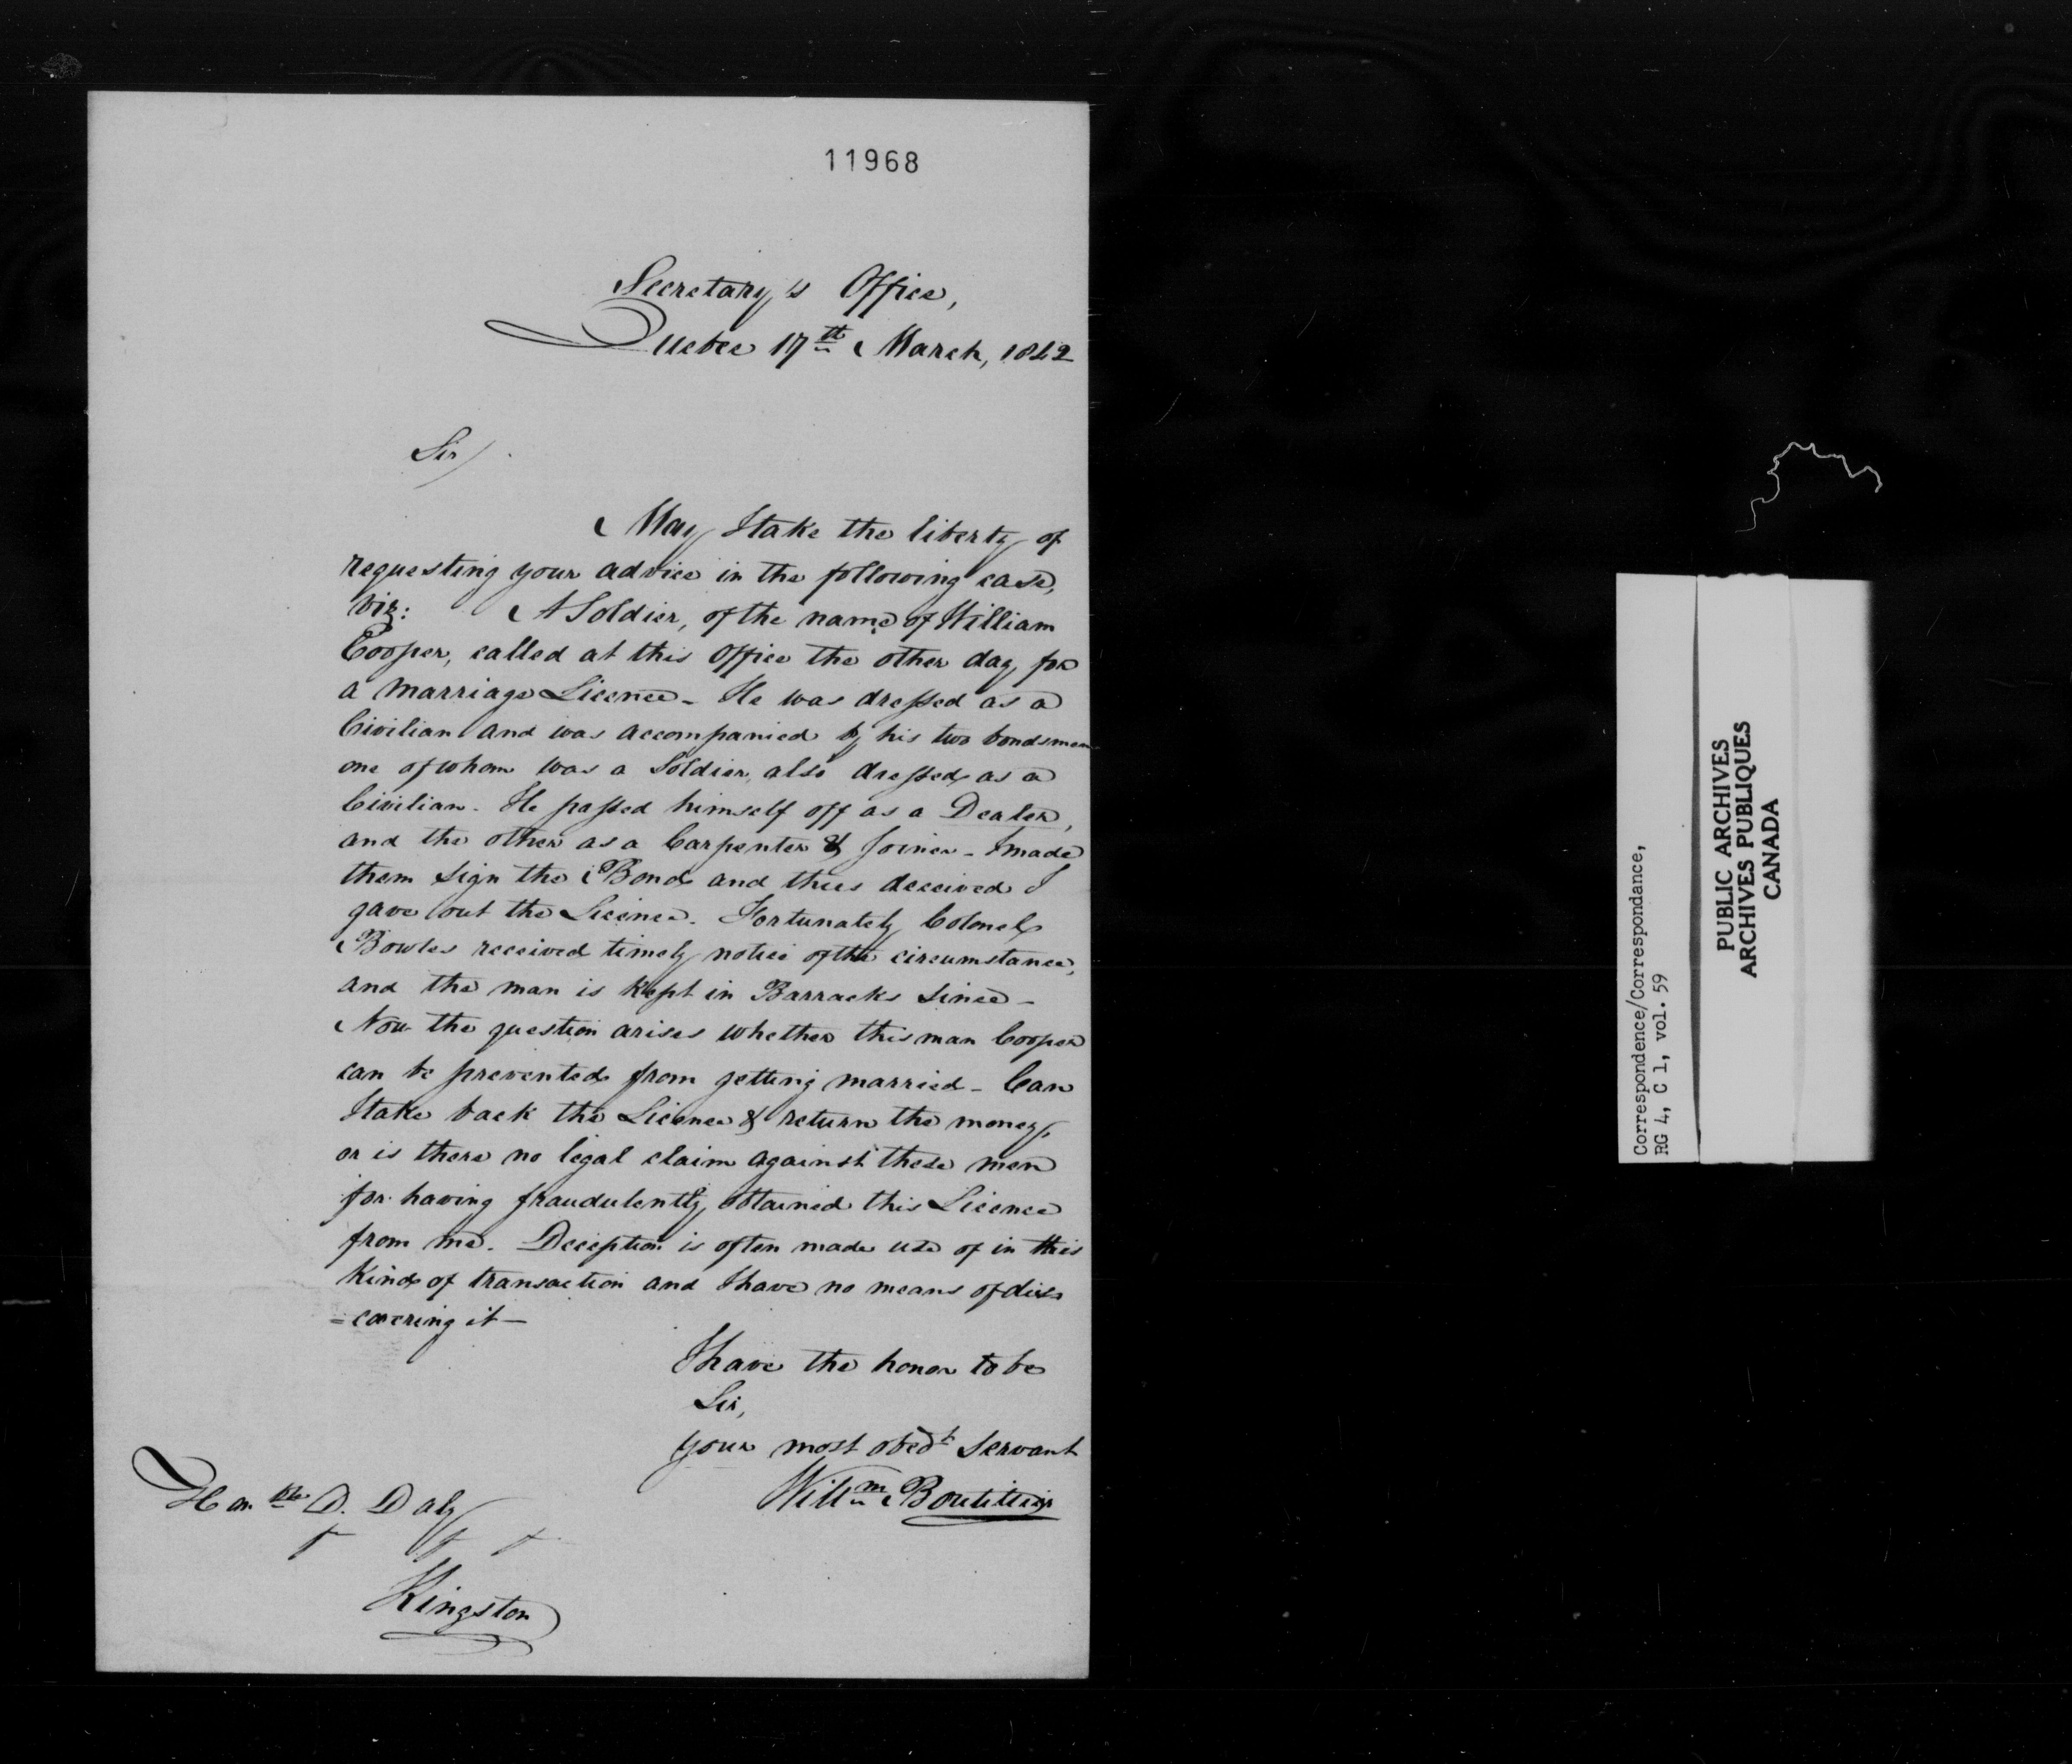 11968
Secretary's Office,
Quebec 17th March, 1842
Sir,
May I take the liberty of
requesting your advice in the following case,
viz: A Soldier, of the name of William
Cooper, called at this Office the other day for
a Marriage Licence - He was dressed as a
Civilian and was accompanied by his two bondsmen
one of whom was a Soldier, also dressed as a
Civilian. He passed himself off as a Dealer,
and the other as a Carpenter & Joiner - I made
them sign the Bond and thus deceived I
gave out the Licence. Fortunately Colonel
Bowles received timely notice of the circumstance,
and the man is kept in Barracks since -
Now the question arises whether this man Cooper
can be prevented from getting married - Can
I take back the Licence & return the money,
or is there no legal claim against these men
for having fraudulently obtained this Licence
from me. Deception is often made use of in this
kind of transaction and I have no means of dis=
=covering it -
I have the honor to be
Sir,
your most obedt servant
Willm
Honble D. Daly
Kingston
Correspondence/Correspondance,
RG 4, C 1, vol. 59
PUBLIC ARCHIVES
ARCHIVES PUBLIQUES
CANADA